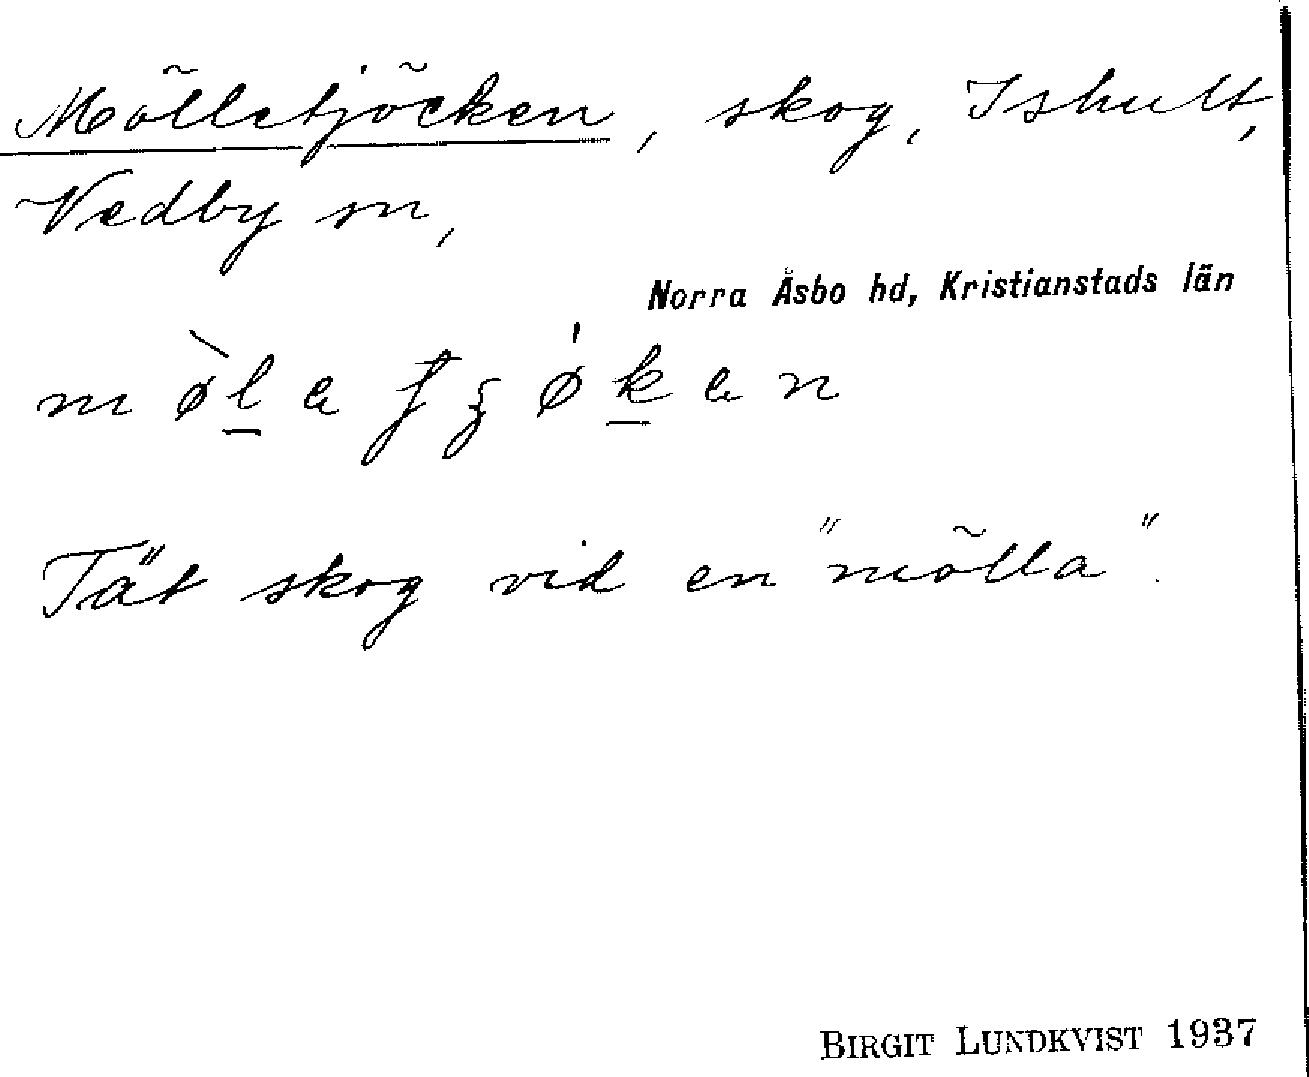 Mölletjöcken, skog, Ishult,
Vedby sn,
Norra Åsbo hd, Kristianstads län
Tät skog vid en "mölla".
BIRGIT LUNDKVIST 1937